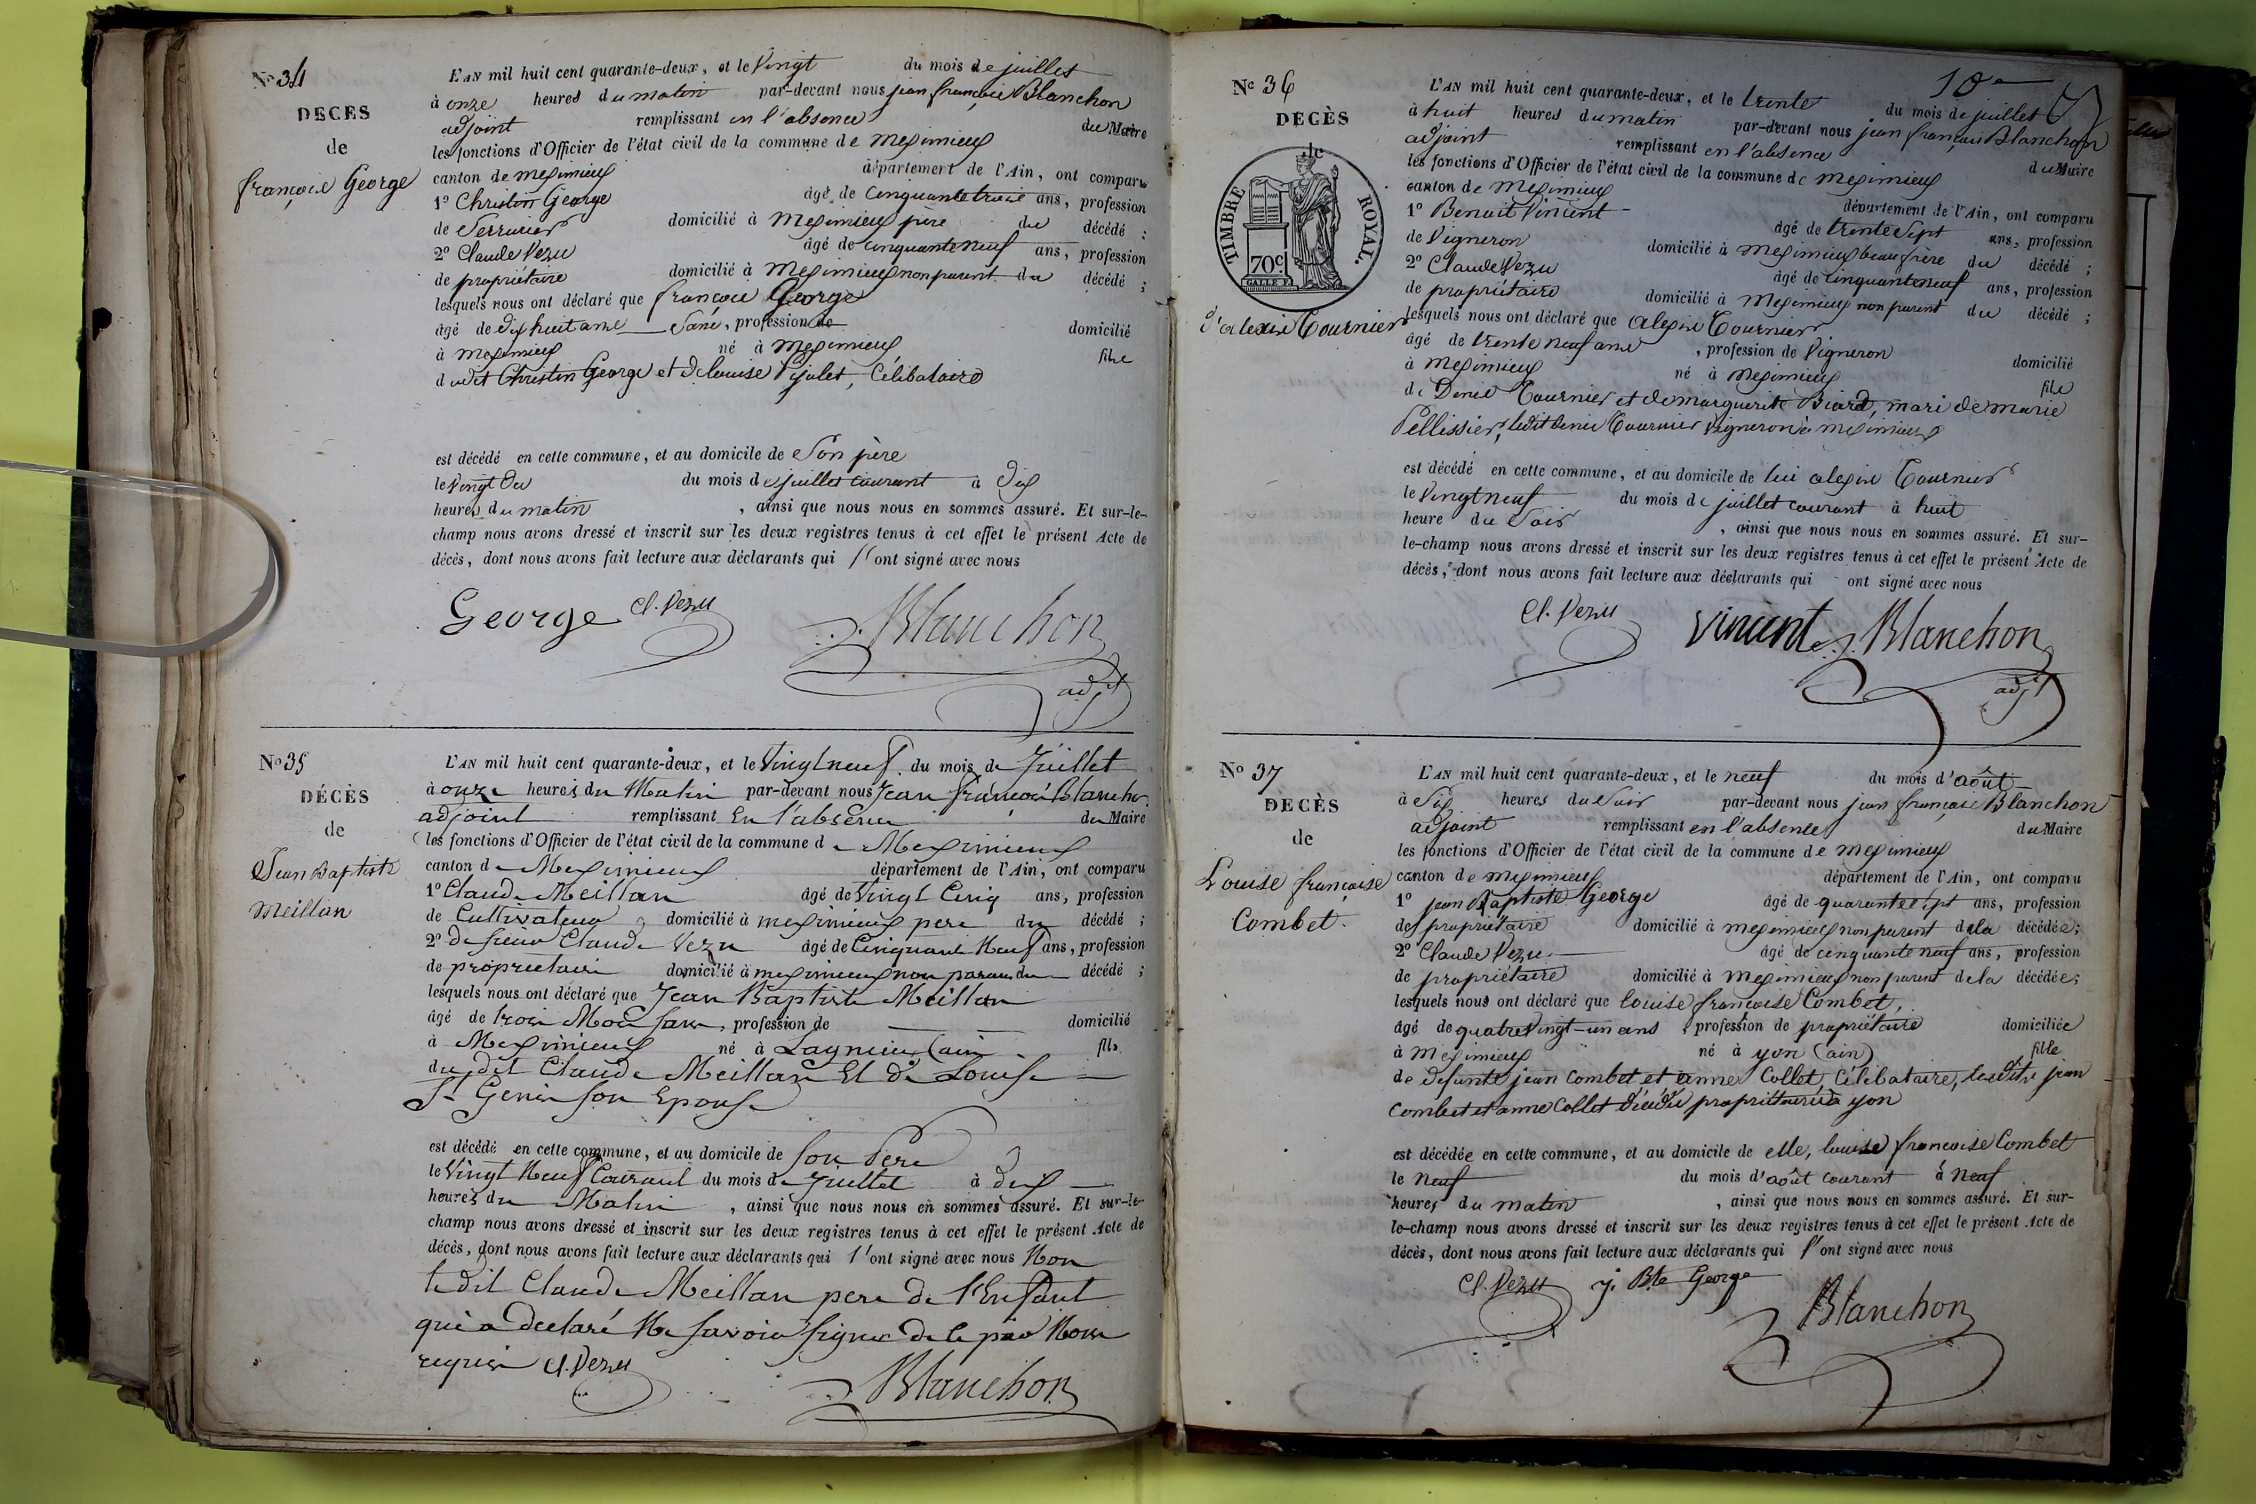 No 34
DECES
de
françois George
L'AN mil huit cent quarante-deux, et le Vingt du mois de juillet
à onze heures du matin par-devant nous jean françois Blanchon
adjoint remplissant en l'absence du Maire
les fonctions d'Officier de l'état civil de la commune de meximieux
canton de meximieux département de l'Ain, ont comparu
1º Christin George âgé de cinquante trois ans, profession
de Serrurier domicilié à meximieux père du décédé ;
2º Claude Vezu âgé de cinquante neuf ans, profession
de propriétaire domicilié à meximieux non parent du décédé ;
lesquels nous ont déclaré que françois George
âgé de dix huit ans Sans, profession de domicilié
à meximieux né à meximieux fils
dudit Christin George et de louise Pijolet, Célibataire
est décédé en cette commune, et au domicile de Son père
le Vingt du du mois de juillet courant à dix
heures du matin, ainsi que nous nous en sommes assuré. Et sur-le-
champ nous avons dressé et inscrit sur les deux registres tenus à cet effet le présent Acte de
décès, dont nous avons fait lecture aux déclarants qui l'ont signé avec nous
George Cl. Vezu J. Blanchon
adjt
No 35
DÉCÈS
de
Jean Baptiste
Meillan
L'AN mil huit cent quarante-deux, et le Vingt neuf du mois de Juillet
à onze heures du Matin par-devant nous Jean françois Blanchon
adjoint remplissant En l'absence du Maire
les fonctions d'Officier de l'état civil de la commune de Meximieux
canton de Meximieux département de l'Ain, ont comparu
1º Claude Meillan âgé de Vingt Cinq ans, profession
de Cultivateur domicilié à meximieux pere du décédé ;
2º de sieur Claude Vezu âgé de Cinquante Neuf ans, profession
de proprietaire domicilié à meximieux non parent du décédé ;
lesquels nous ont déclaré que Jean Baptiste Meillan
âgé de trois Mois sans, profession de domicilié
à Meximieux né à Lagnieu (ain fils
du dit Claude Meillan Et de Louise
St Genis son Epouse
est décédé en cette commune, et au domicile de Son Pere
le Vingt Neuf Courant du mois de Juillet à dix
heures du Matin, ainsi que nous nous en sommes assuré. Et sur-le-
champ nous avons dressé et inscrit sur les deux registres tenus à cet effet le présent Acte de
décès, dont nous avons fait lecture aux déclarants qui l'ont signé avec nous Non
le dit Claude Meillan pere de l'Enfant
qui a declaré Ne savoir signer de ce par Nous
requis Cl. Vezu J. Blanchon
10e
No 36
DÉCÈS
de
TIMBRE ROYAL.
70c
d'alexis Tournier
L'AN mil huit cent quarante-deux, et le trente du mois de juillet
à huit heures du matin par-devant nous jean françois Blanchon
adjoint remplissant en l'absence du Maire
les fonctions d'Officier de l'état civil de la commune de meximieux
canton de meximieux département de l'Ain, ont comparu
1º Benoit Vincent âgé de trente sept ans, profession
de Vigneron domicilié à meximieux beau frère du décédé ;
2º Claude Vezu âgé de cinquante neuf ans, profession
de propriétaire domicilié à meximieux non parent du décédé ;
lesquels nous ont déclaré que alexis Tournier
âgé de trente neuf ans, profession de Vigneron domicilié
à meximieux né à meximieux fils
de Denis Tournier et de marguerite Biard, mari de marie
Pellissier, ledit denis Tournier vigneron à meximieux
est décédé en cette commune, et au domicile de lui alexis Tournier
le Vingt neuf du mois de juillet courant à huit
heure du Soir, ainsi que nous nous en sommes assuré. Et sur-
le-champ nous avons dressé et inscrit sur les deux registres tenus à cet effet le présent Acte de
décès, dont nous avons fait lecture aux déclarants qui ont signé avec nous
Cl. Vezu Vincent J. Blanchon
adjt
No 37
DÉCÈS
de
Louise françoise
Combet.
L'AN mil huit cent quarante-deux, et le neuf du mois d'août
à Six heures du Soir par-devant nous jean françois Blanchon
adjoint remplissant en l'absence du Maire
les fonctions d'Officier de l'état civil de la commune de meximieux
canton de meximieux département de l'Ain, ont comparu
1º jean Baptiste George âgé de quarante sept ans, profession
de propriétaire domicilié à meximieux non parent de la décédée ;
2º Claude Vezu âgé de cinquante neuf ans, profession
de propriétaire domicilié à meximieux non parent de la décédée ;
lesquels nous ont déclaré que louise françoise Combet,
âgé de quatre Vingt-un ans, profession de propriétaire domiciliée
à meximieux né à yon (ain) fille
de defunts jean Combet et anne Collet, Célibataire, lesdits jean
Combet et anne Collet décédés propriétaires à yon
est décédée en cette commune, et au domicile de elle, louise françoise Combet
le neuf du mois d'août courant à neuf
heures du matin, ainsi que nous nous en sommes assuré. Et sur-
le-champ nous avons dressé et inscrit sur les deux registres tenus à cet effet le présent Acte de
décès, dont nous avons fait lecture aux déclarants qui l'ont signé avec nous
Cl. Vezu j. Bte George
J. Blanchon